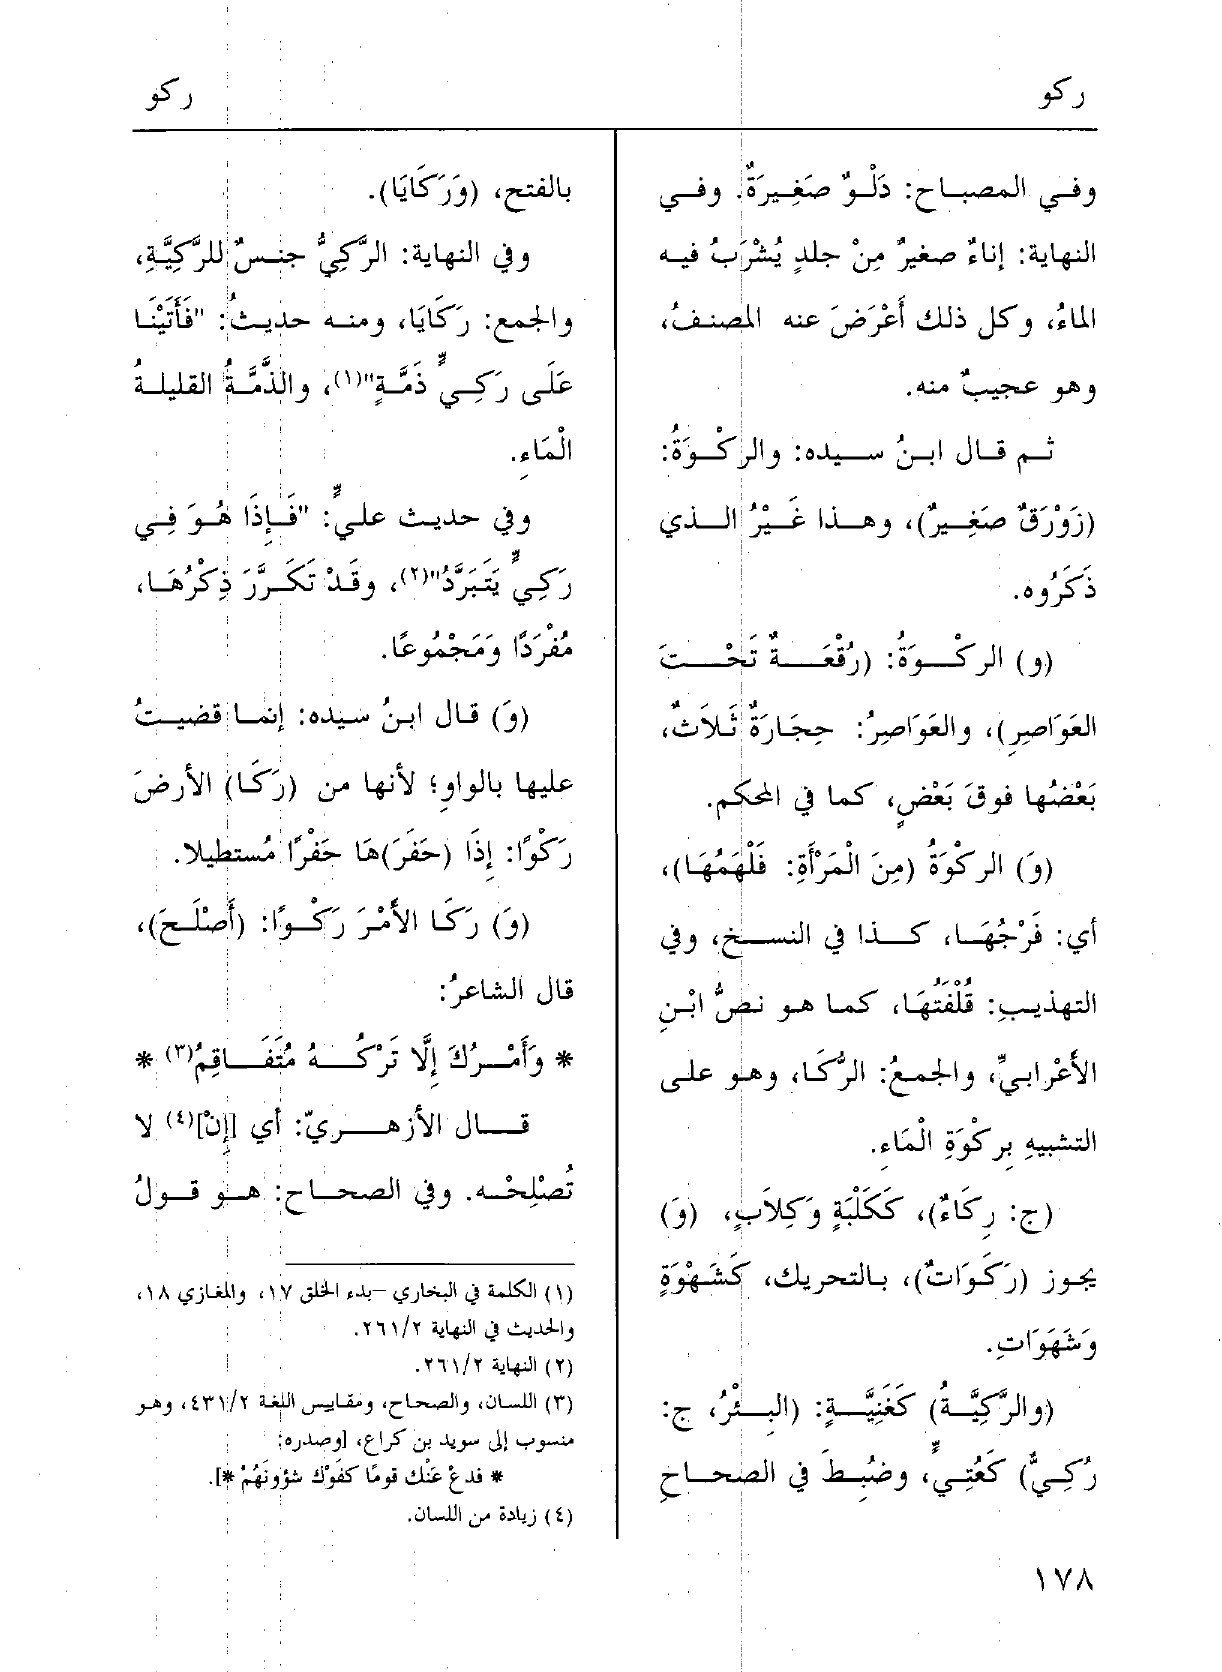 ركو
ركو
وفي المصباح: دَلْوٌ صَغِيرَةٌ. وفي
النهاية: إناءٌ صغيرٌ مِنْ جلدٍ يُشْرَبُ فيه
الماءُ، وكل ذلك أَعْرَضَ عنه المصنفُ،
وهو عجيبٌ منه.
ثم قال ابنُ سيده: والركْوَةُ:
(زَوْرَقٌ صَغِيرٌ)، وهذا غَيْرُ الذي
ذَكَرُوه.
(و) الركْوَةُ: (رُقْعَةٌ تَحْتَ
العَوَاصِرِ)، والعَوَاصِرُ: حِجَارَةٌ ثَلَاثٌ،
بَعْضُها فوقَ بَعْضٍ، كما في المحكم.
(وَ) الركْوَةُ (مِنَ الْمَرْأَةِ: فَلْهَمُهَا)،
أي: فَرْجُهَا، كذا في النسخ، وفي
التهذيبِ: قُلْفَتُهَا، كما هو نصُّ ابْنِ
الأَعْرابيِّ، والجمعُ: الرُّكَا، وهو على
التشبيهِ بِركْوَةِ الْمَاءِ.
(ج: رِكَاءٌ)، كَكَلْبَةٍ وَكِلاَبٍ، (وَ)
يجوز (رَكَوَاتٌ)، بالتحريك، كَشَهْوَةٍ
وَشَهَوَاتٍ.
(والرَّكِيَّةُ) كَغَنِيَّةٍ: (البِئْرُ، ج:
رُكِيٌّ) كَعُتِيٍّ، وضُبِطَ في الصحاحِ
بالفتح، (وَرَكَايَا).
وفي النهاية: الرَّكِيُّ جنسٌ للرَّكِيَّةِ،
والجمع: رَكَايَا، ومنه حديثُ: "فَأَتَيْنَا
عَلَى رَكِيٍّ ذَمَّةٍ"(١)، والذَّمَّةُ القليلةُ
الْمَاءِ.
وفي حديث عليٍّ: "فَإِذَا هُوَ فِي
رَكِيٍّ يَتَبَرَّدُ"(٢)، وقَدْ تَكَرَّرَ ذِكْرُهَا،
مُفْرَدًا وَمَجْمُوعًا.
(وَ) قال ابنُ سيده: إنما قضيتُ
عليها بالواوِ؛ لأنها من (رَكَا) الأرضَ
رَكْوًا: إِذَا (حَفَرَ)هَا حَفْرًا مُستطيلا.
(وَ) رَكَا الأَمْرَ رَكْوًا: (أَصْلَحَ)،
قال الشاعرُ:
* وَأَمْرُكَ إِلَّا تَرْكُهُ مُتَفَاقِمُ(٣) *
قال الأزهريّ: أي [إِنْ](٤) لا
تُصْلِحْه. وفي الصحاح: هو قولُ
(١) الكلمة في البخاري –بدء الخلق ١٧، والمغازي ١٨،
والحديث في النهاية ٢٦١/٢.
(٢) النهاية ٢٦١/٢.
(٣) اللسان، والصحاح، ومقاييس اللغة ٤٣١/٢، وهو
منسوب إلى سويد بن كراع، [وصدره:
* فدعْ عَنْك قومًا كَفَوْك شؤونَهُمْ *].
(٤) زيادة من اللسان.
١٧٨